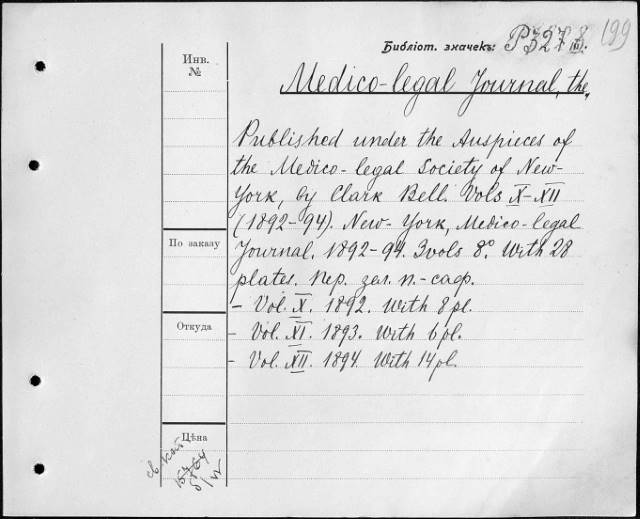 199
Библіот. значекъ: P327 III.
Инв.
№
Medico-legal Journal, the,
Published under the Auspieces of
the Medico-legal Society of New-
York, by Clark Bell. Vols X-XII
(1892-94). New-York, Medico-legal
По заказу
Journal. 1892-94. 3 vols 8°. With 28
plates. Пер. зел. п.-саф.
- Vol. X. 1892. With 8 pl.
Откуда
- Vol. XI. 1893. With 6 pl.
- Vol. XII. 1894. With 14 pl.
Цѣна